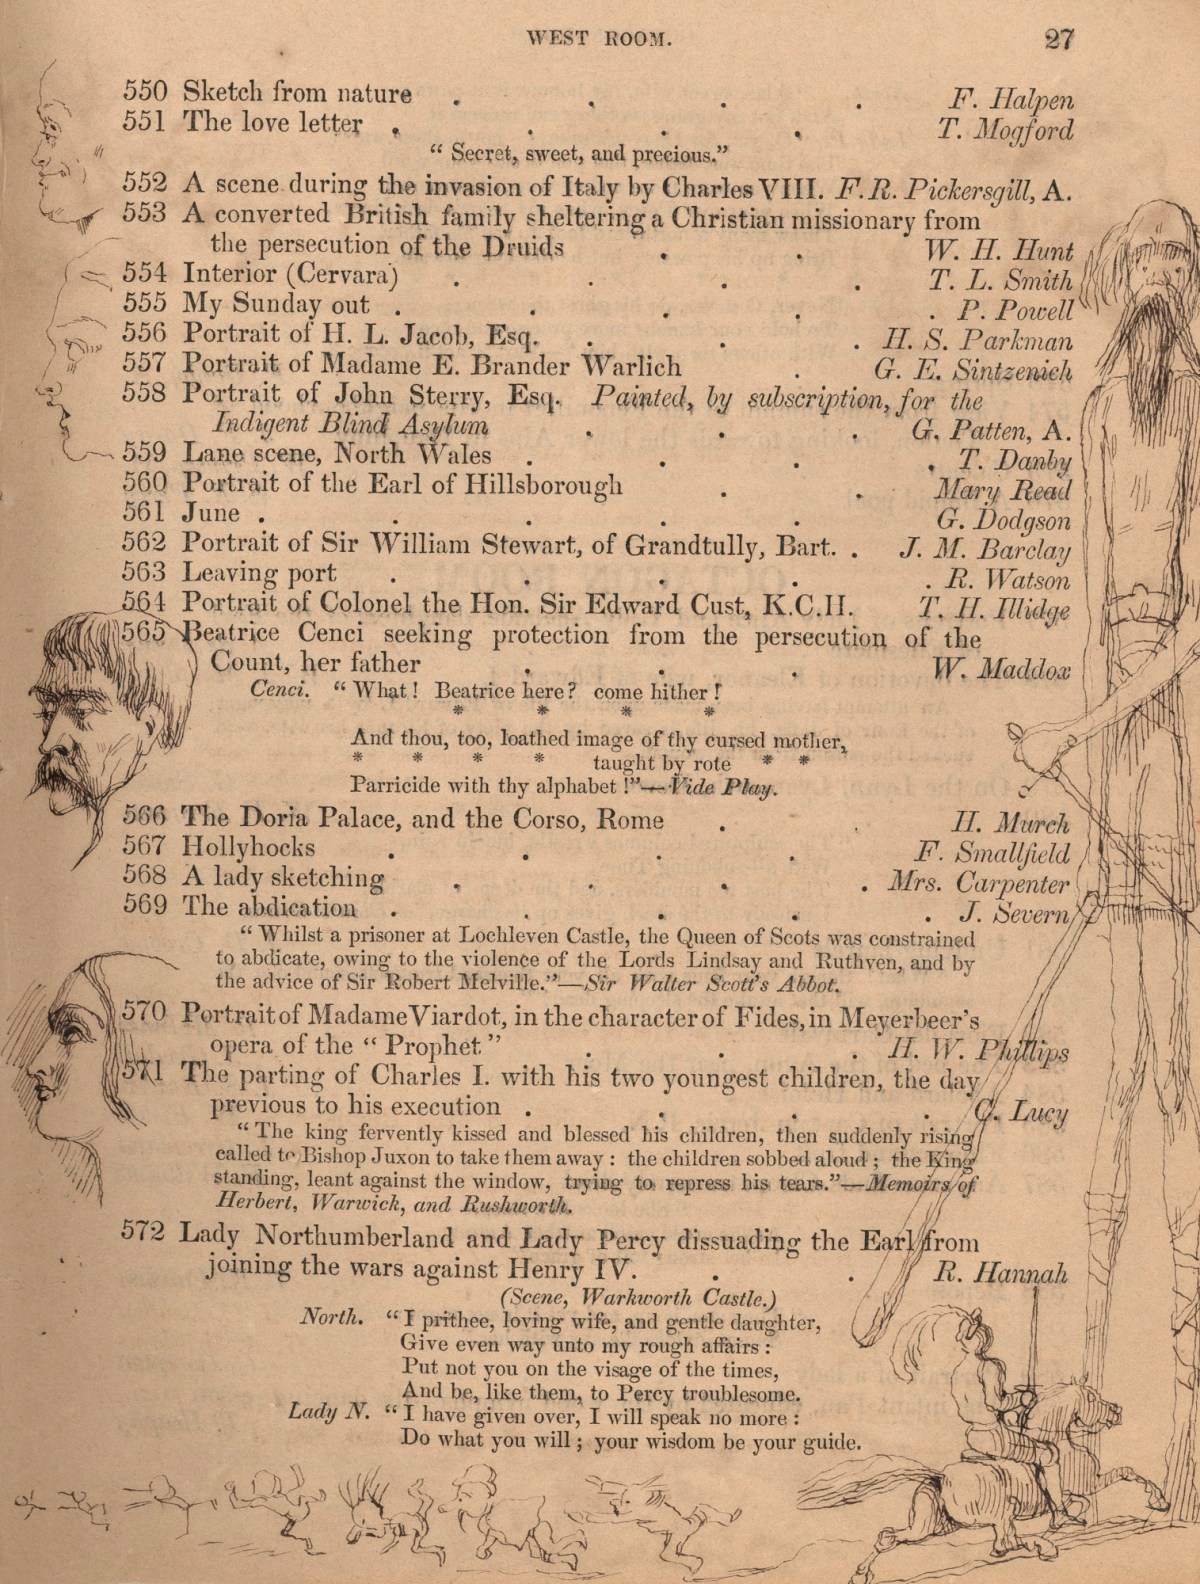 WEST ROOM. 27
550 Sketch from nature . . . . F. Halpen
551 The love letter . . . . T. Mogford
“ Secret, sweet, and precious.”
552 A scene during the invasion of Italy by Charles VIII. F. R. Pickersgill, A.
553 A converted British family sheltering a Christian missionary from
the persecution of the Druids . . W. H. Hunt
554 Interior (Cervara) . . . . T. L. Smith
555 My Sunday out . . . . . P. Powell
556 Portrait of H. L. Jacob, Esq. . . . H. S. Parkman
557 Portrait of Madame E. Brander Warlich . G. E. Sintzenich
558 Portrait of John Sterry, Esq. Painted, by subscription, for the
Indigent Blind Asylum . . . G. Patten, A.
559 Lane scene, North Wales . . . . T. Danby
560 Portrait of the Earl of Hillsborough . . Mary Read
561 June . . . . . G. Dodgson
562 Portrait of Sir William Stewart, of Grandtully, Bart. . J. M. Barclay
563 Leaving port . . . . . R. Watson
564 Portrait of Colonel the Hon. Sir Edward Cust, K.C.H. T. H. Illidge
565 Beatrice Cenci seeking protection from the persecution of the
Count, her father . . . W. Maddox
Cenci. “ What ! Beatrice here ? come hither !
* * * *
And thou, too, loathed image of thy cursed mother,
* * * * taught by rote * *
Parricide with thy alphabet !”—Vide Play.
566 The Doria Palace, and the Corso, Rome . . H. Murch
567 Hollyhocks . . . . F. Smallfield
568 A lady sketching . . . . Mrs. Carpenter
569 The abdication . . . . . J. Severn
“ Whilst a prisoner at Lochleven Castle, the Queen of Scots was constrained
to abdicate, owing to the violence of the Lords Lindsay and Ruthven, and by
the advice of Sir Robert Melville.”—Sir Walter Scott’s Abbot.
570 Portrait of Madame Viardot, in the character of Fides, in Meyerbeer’s
opera of the “ Prophet ” . . . H. W. Phillips
571 The parting of Charles I. with his two youngest children, the day
previous to his execution . . . . C. Lucy
“ The king fervently kissed and blessed his children, then suddenly rising
called to Bishop Juxon to take them away : the children sobbed aloud ; the King
standing, leant against the window, trying to repress his tears.”—Memoirs of
Herbert, Warwick, and Rushworth.
572 Lady Northumberland and Lady Percy dissuading the Earl from
joining the wars against Henry IV. . . R. Hannah
(Scene, Warkworth Castle.)
North. “ I prithee, loving wife, and gentle daughter,
Give even way unto my rough affairs :
Put not you on the visage of the times,
And be, like them, to Percy troublesome.
Lady N. “ I have given over, I will speak no more :
Do what you will ; your wisdom be your guide.